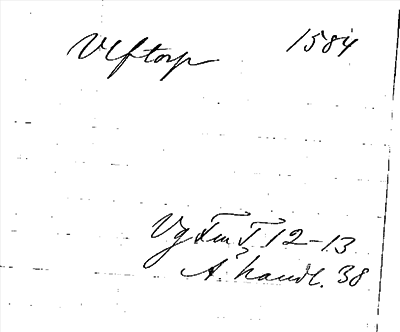 Ulftorp 1584
Vg Fm T 12-13
A. handl. 38